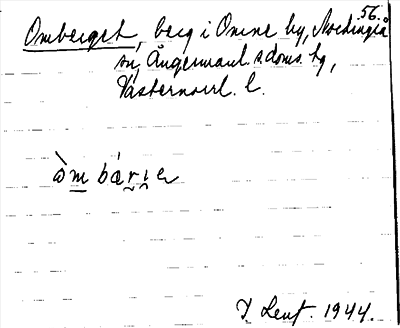 56.
Omberget, berg i Omne by, Nordingrå
sn, Ångermanl. s. doms. hg,
Västernorrl. l.
òm bárie
Leuf. 1944.